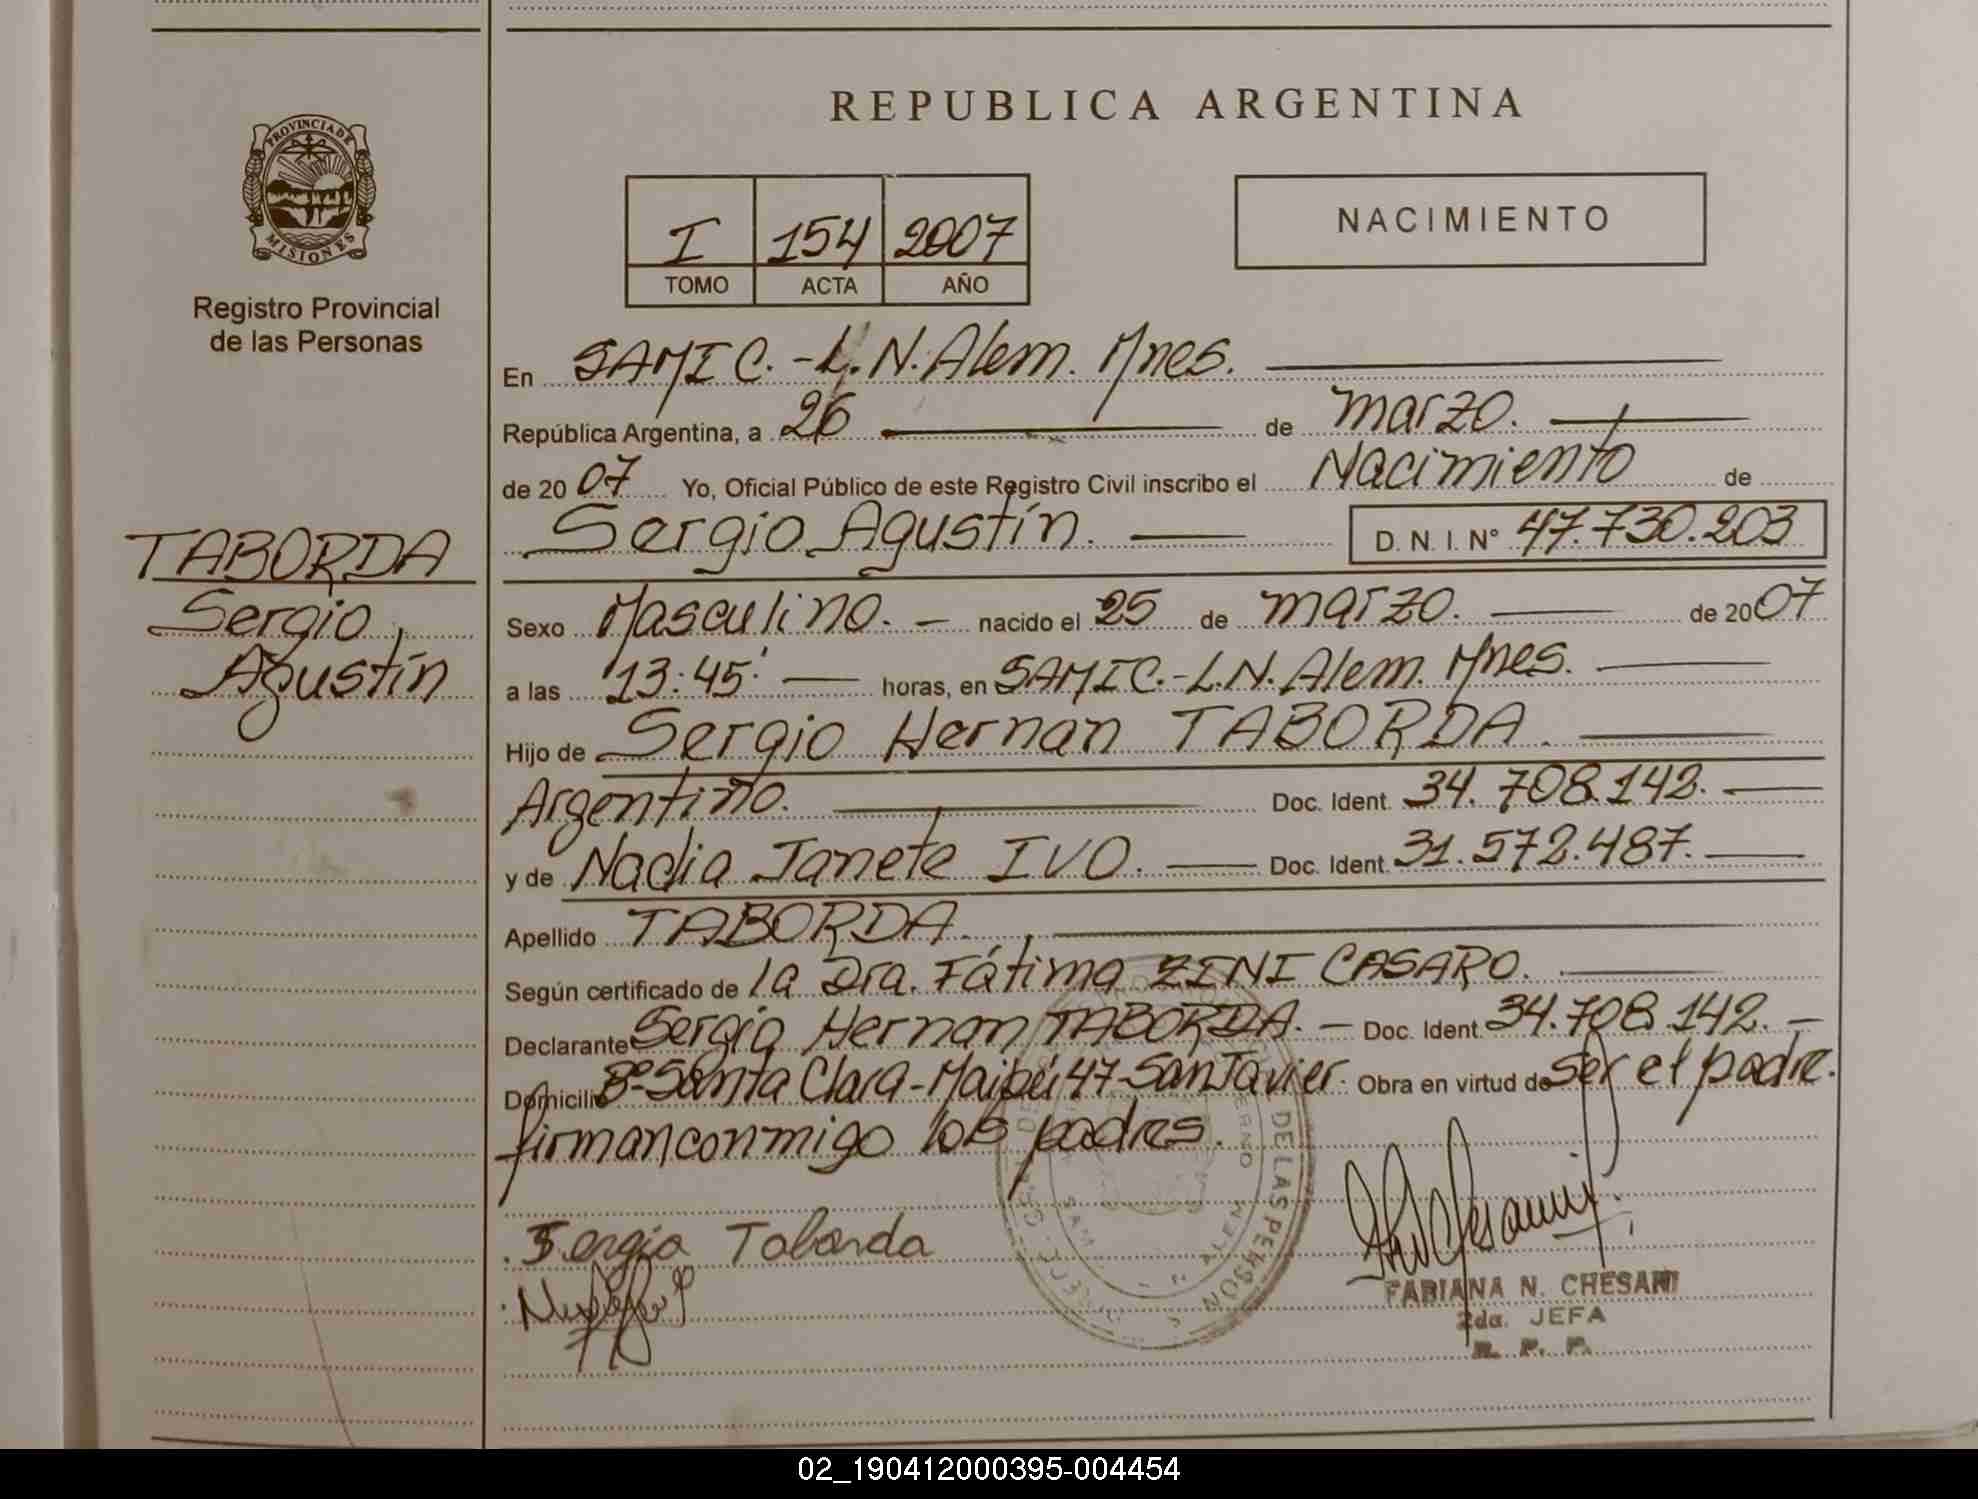 REPUBLICA ARGENTINA
PROVINCIA DE
MISIONES
Registro Provincial
de las Personas
I 154 2007
TOMO ACTA AÑO
NACIMIENTO
En SAMIC.-L.N.Alem. Mnes.
República Argentina, a 26 de marzo.
de 2007 Yo, Oficial Público de este Registro Civil inscribo el Nacimiento de
Sergio Agustín. D. N. I. N° 47.730.203
TABORDA
Sergio
Agustín
Sexo Masculino. - nacido el 25 de marzo. de 2007
a las 13:45' horas, en SAMIC.-L.N.Alem. Mnes.
Hijo de Sergio Hernan TABORDA.
Argentino. Doc. Ident. 34.708.142.
y de Nadia Janete IVO. Doc. Ident. 31.572.487.
Apellido TABORDA.
Según certificado de la Dra. Fátima ZINI CASARO.
Declarante Sergio Hernan TABORDA. - Doc. Ident. 34.708.142. -
Domicilio B°-Santa Clara-Maipú 47-San Javier. Obra en virtud de ser el padre.
firman conmigo los padres.
Sergio Taborda
DE LAS PERSONAS
ALEM
FABIANA N. CHESANI
2da. JEFA
R. P. P.
02_190412000395-004454